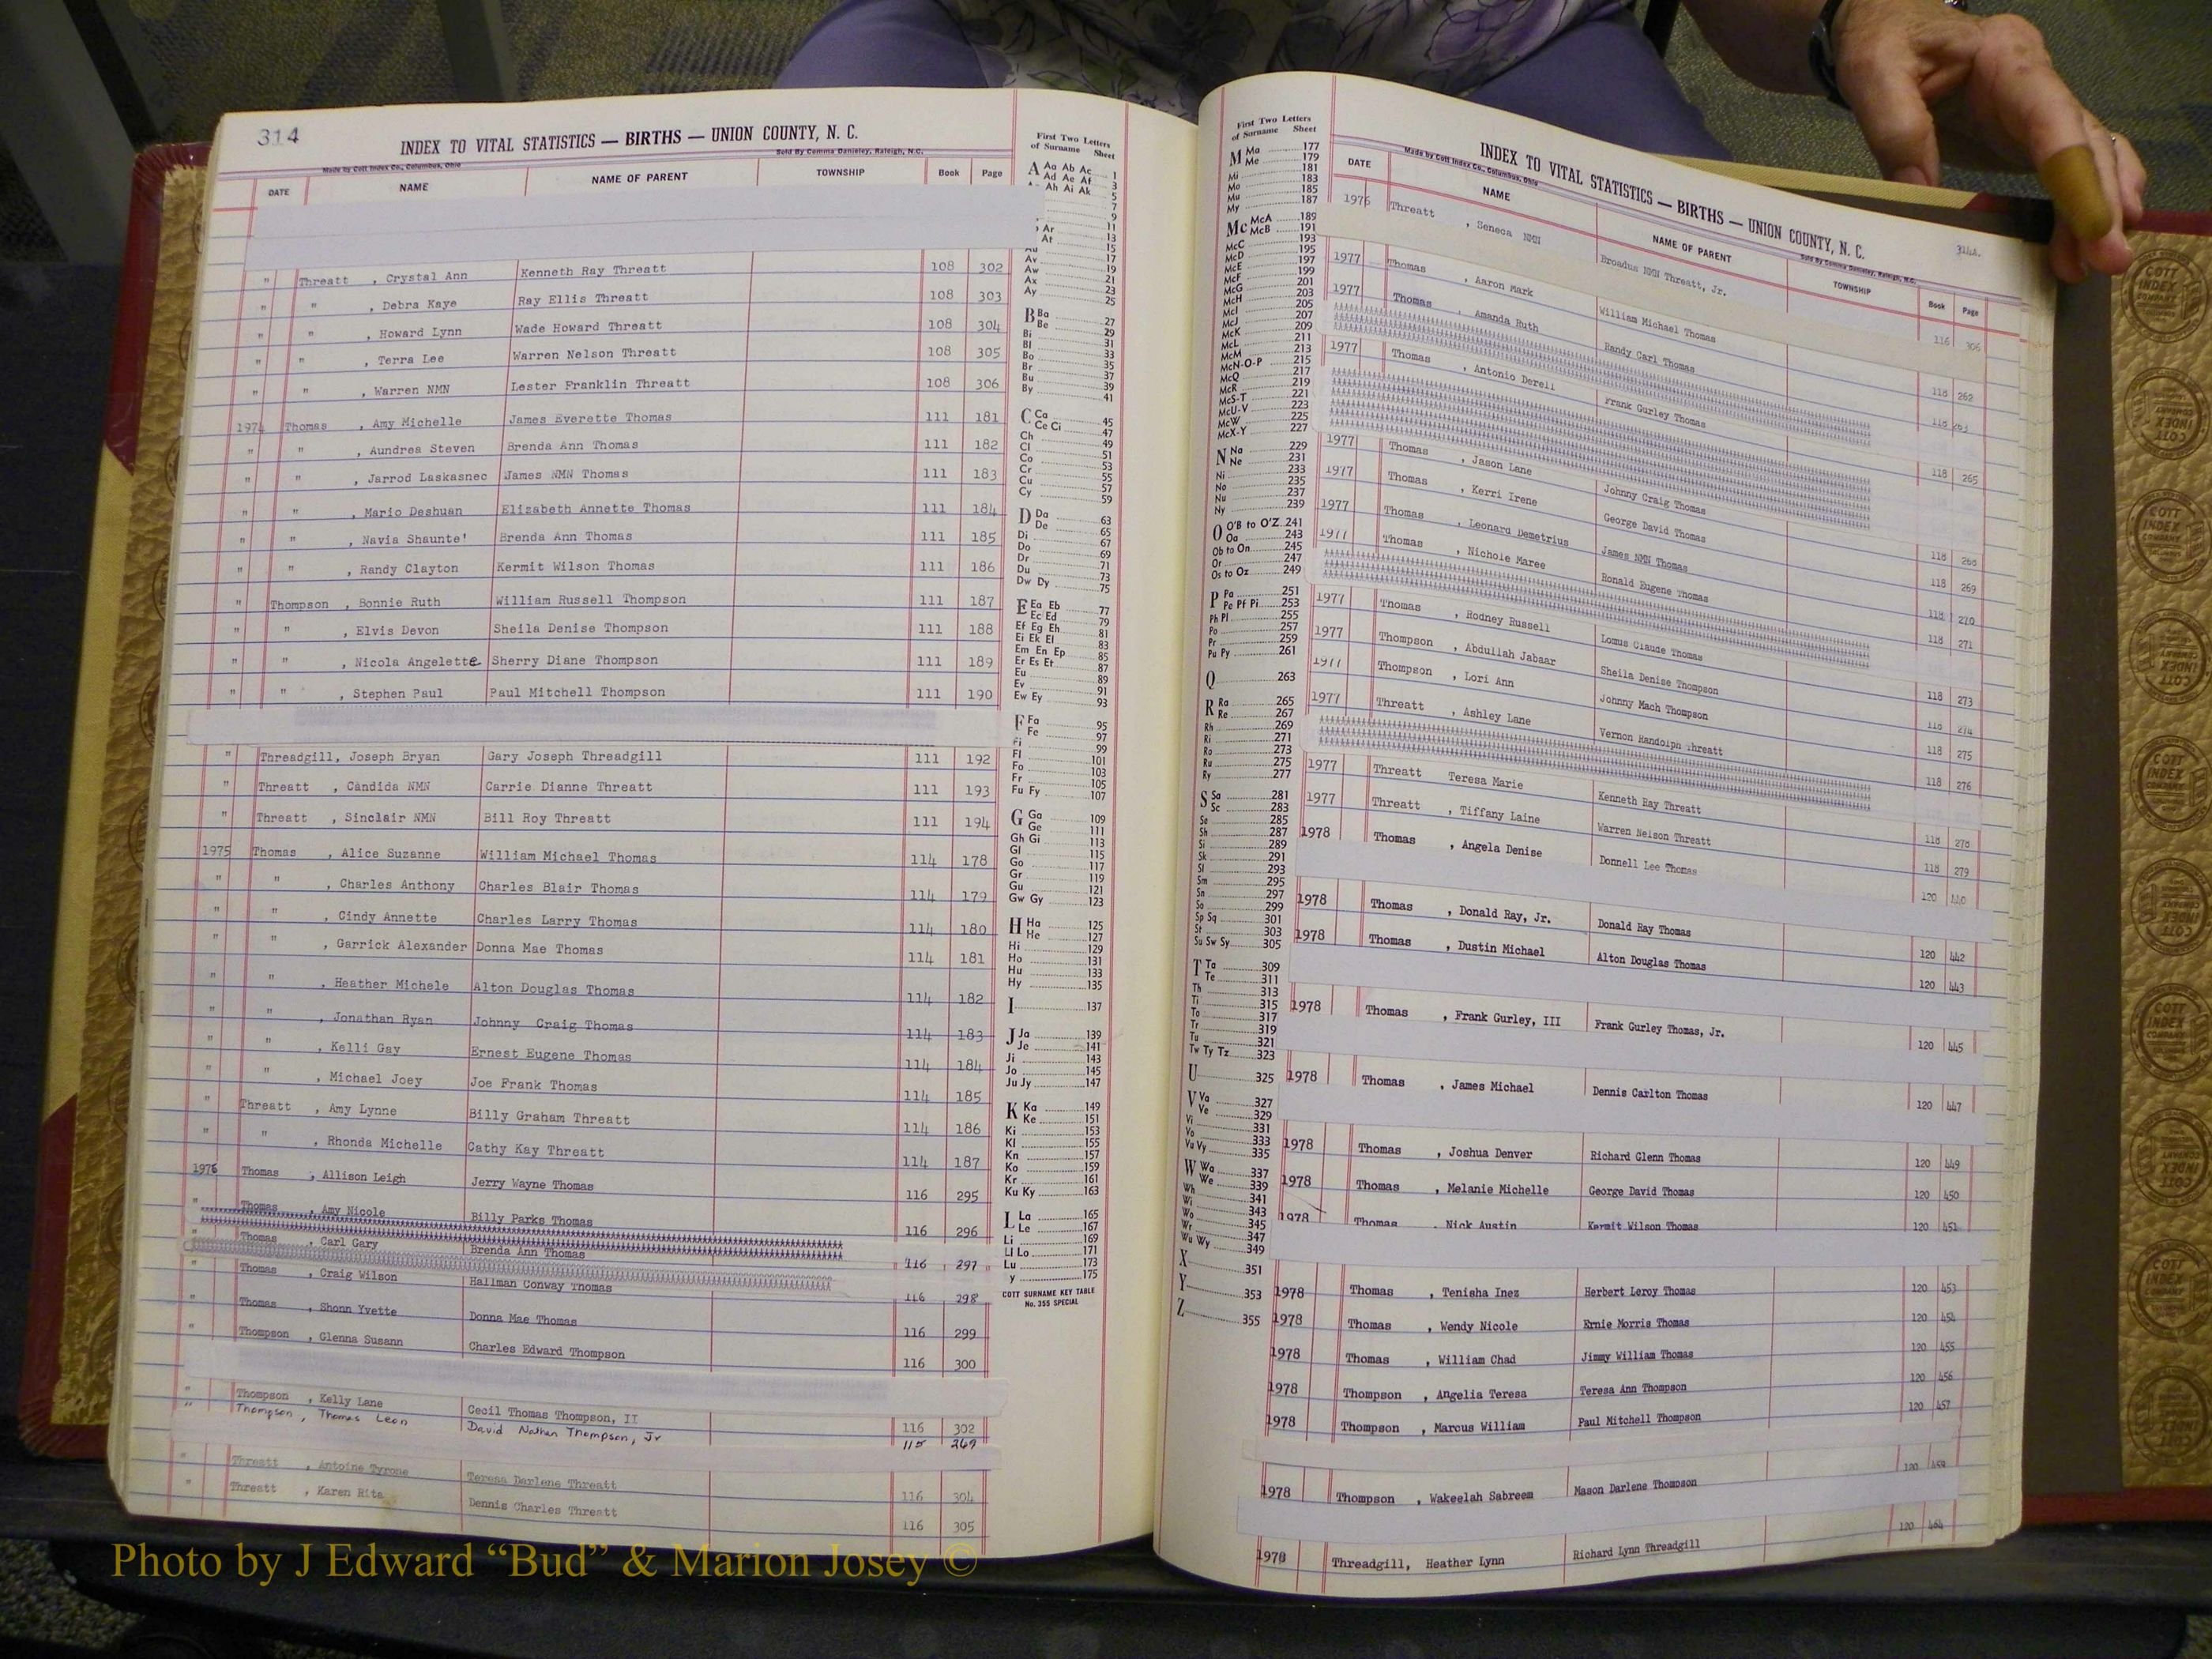 314
INDEX TO VITAL STATISTICS — BIRTHS — UNION COUNTY, N. C.
Made by Cott Index Co., Columbus, Ohio
Sold By Comma Danieley, Raleigh, N.C.
DATE NAME NAME OF PARENT TOWNSHIP Book Page
" Threatt , Crystal Ann Kenneth Ray Threatt 108 302
" " , Debra Kaye Ray Ellis Threatt 108 303
" " , Howard Lynn Wade Howard Threatt 108 304
" " , Terra Lee Warren Nelson Threatt 108 305
" " , Warren NMN Lester Franklin Threatt 108 306
1974 Thomas , Amy Michelle James Everette Thomas 111 181
" " , Aundrea Steven Brenda Ann Thomas 111 182
" " , Jarrod Laskasnec James NMN Thomas 111 183
" " , Mario Deshuan Elizabeth Annette Thomas 111 184
" " , Navia Shaunte' Brenda Ann Thomas 111 185
" " , Randy Clayton Kermit Wilson Thomas 111 186
" Thompson , Bonnie Ruth William Russell Thompson 111 187
" " , Elvis Devon Sheila Denise Thompson 111 188
" " , Nicola Angelette Sherry Diane Thompson 111 189
" " , Stephen Paul Paul Mitchell Thompson 111 190
" Threadgill, Joseph Bryan Gary Joseph Threadgill 111 192
" Threatt , Candida NMN Carrie Dianne Threatt 111 193
" Threatt , Sinclair NMN Bill Roy Threatt 111 194
1975 Thomas , Alice Suzanne William Michael Thomas 114 178
" " , Charles Anthony Charles Blair Thomas 114 179
" " , Cindy Annette Charles Larry Thomas 114 180
" " , Garrick Alexander Donna Mae Thomas 114 181
" " , Heather Michele Alton Douglas Thomas 114 182
" " , Jonathan Ryan Johnny Craig Thomas 114 183
" " , Kelli Gay Ernest Eugene Thomas 114 184
" " , Michael Joey Joe Frank Thomas 114 185
" Threatt , Amy Lynne Billy Graham Threatt 114 186
" " , Rhonda Michelle Cathy Kay Threatt 114 187
1976 Thomas , Allison Leigh Jerry Wayne Thomas 116 295
" Thomas , Amy Nicole Billy Parks Thomas 116 296
" Thomas , Carl Gary Brenda Ann Thomas 116 297
" Thomas , Craig Wilson Hallman Conway Thomas 116 298
" Thomas , Shonn Yvette Donna Mae Thomas 116 299
" Thompson , Glenna Susann Charles Edward Thompson 116 300
" Thompson , Kelly Lane Cecil Thomas Thompson, II 116 302
" Thompson , Thomas Leon David Nathan Thompson, Jr 115 269
" Threatt , Antoine Tyrone Teresa Darlene Threatt 116 304
" Threatt , Karen Rita Dennis Charles Threatt 116 305
First Two Letters
of Surname Sheet
A Aa Ab Ac 1
Ad Ae Af 3
Ah Ai Ak 5
7
9
Ar 11
At 13
Au 15
Av 17
Aw 19
Ax 21
Ay 23
25
B Ba 27
Be 29
Bi 31
Bl 33
Bo 35
Br 37
Bu 39
By 41
C Ca 45
Ce Ci 47
Ch 49
Cl 51
Co 53
Cr 55
Cu 57
Cy 59
D Da 63
De 65
Di 67
Do 69
Dr 71
Du 73
Dw Dy 75
E Ea Eb 77
Ec Ed 79
Ef Eg Eh 81
Ei Ek El 83
Em En Ep 85
Er Es Et 87
Eu 89
Ev 91
Ew Ey 93
F Fa 95
Fe 97
Fi 99
Fl 101
Fo 103
Fr 105
Fu Fy 107
G Ga 109
Ge 111
Gh Gi 113
Gl 115
Go 117
Gr 119
Gu 121
Gw Gy 123
H Ha 125
He 127
Hi 129
Ho 131
Hu 133
Hy 135
I 137
J Ja 139
Je 141
Ji 143
Jo 145
Ju Jy 147
K Ka 149
Ke 151
Ki 153
Kl 155
Kn 157
Ko 159
Kr 161
Ku Ky 163
L La 165
Le 167
Li 169
Ll Lo 171
Lu 173
y 175
COTT SURNAME KEY TABLE
No. 355 SPECIAL
First Two Letters
of Surname Sheet
M Ma 177
Me 179
Mi 181
Mo 183
Mu 185
My 187
Mc McA 189
McB 191
McC 193
McD 195
McE 197
McF 199
McG 201
McH 203
McI 205
McJ 207
McK 209
McL 211
McM 213
McN-O-P 215
McQ 217
McR 219
McS-T 221
McU-V 223
McW 225
McX-Y 227
N Na 229
Ne 231
Ni 233
No 235
Nu 237
Ny 239
O O'B to O'Z 241
Oa 243
Ob to On 245
Or 247
Os to Oz 249
P Pa 251
Pe Pf Pi 253
Ph Pl 255
Po 257
Pr 259
Pu Py 261
Q 263
R Ra 265
Re 267
Rh 269
Ri 271
Ro 273
Ru 275
Ry 277
S Sa 281
Sc 283
Se 285
Sh 287
Si 289
Sk 291
Sl 293
Sm 295
Sn 297
So 299
Sp Sq 301
St 303
Su Sw Sy 305
T Ta 309
Te 311
Th 313
Ti 315
To 317
Tr 319
Tu 321
Tw Ty Tz 323
U 325
V Va 327
Ve 329
Vi 331
Vo 333
Vu Vy 335
W Wa 337
We 339
Wh 341
Wi 343
Wo 345
Wr 347
Wu Wy 349
X 351
Y 353
Z 355
INDEX TO VITAL STATISTICS — BIRTHS — UNION COUNTY, N. C.
314A.
Made by Cott Index Co., Columbus, Ohio
Sold By Comma Danieley, Raleigh, N.C.
DATE NAME NAME OF PARENT TOWNSHIP Book Page
1976 Threatt , Seneca NMN Broadus NMN Threatt, Jr. 116 306
1977 Thomas , Aaron Mark William Michael Thomas 118 262
1977 Thomas , Amanda Ruth Randy Carl Thomas 118 263
1977 Thomas , Antonio Derell Frank Gurley Thomas 118 265
1977 Thomas , Jason Lane Johnny Craig Thomas 118 268
1977 Thomas , Kerri Irene George David Thomas 118 269
1977 Thomas , Leonard Demetrius James NMN Thomas 118 270
1977 Thomas , Nichole Maree Ronald Eugene Thomas 118 271
1977 Thomas , Rodney Russell Lomus Claude Thomas 118 273
1977 Thompson , Abdullah Jabaar Sheila Denise Thompson 118 274
1977 Thompson , Lori Ann Johnny Mach Thompson 118 275
1977 Threatt , Ashley Lane Vernon Randolph Threatt 118 276
1977 Threatt Teresa Marie Kenneth Ray Threatt 118 278
1977 Threatt , Tiffany Laine Warren Nelson Threatt 118 279
1978 Thomas , Angela Denise Donnell Lee Thomas 120 440
1978 Thomas , Donald Ray, Jr. Donald Ray Thomas 120 442
1978 Thomas , Dustin Michael Alton Douglas Thomas 120 443
1978 Thomas , Frank Gurley, III Frank Gurley Thomas, Jr. 120 445
1978 Thomas , James Michael Dennis Carlton Thomas 120 447
1978 Thomas , Joshua Denver Richard Glenn Thomas 120 449
1978 Thomas , Melanie Michelle George David Thomas 120 450
1978 Thomas , Nick Austin Kermit Wilson Thomas 120 451
1978 Thomas , Tenisha Inez Herbert Leroy Thomas 120 453
1978 Thomas , Wendy Nicole Ernie Morris Thomas 120 454
1978 Thomas , William Chad Jimmy William Thomas 120 455
1978 Thompson , Angelia Teresa Teresa Ann Thompson 120 456
1978 Thompson , Marcus William Paul Mitchell Thompson 120 457
1978 Thompson , Wakeelah Sabreem Mason Darlene Thompson 120
1978 Threadgill, Heather Lynn Richard Lynn Threadgill 120
COTT INDEX COMPANY
Photo by J Edward “Bud” & Marion Josey ©